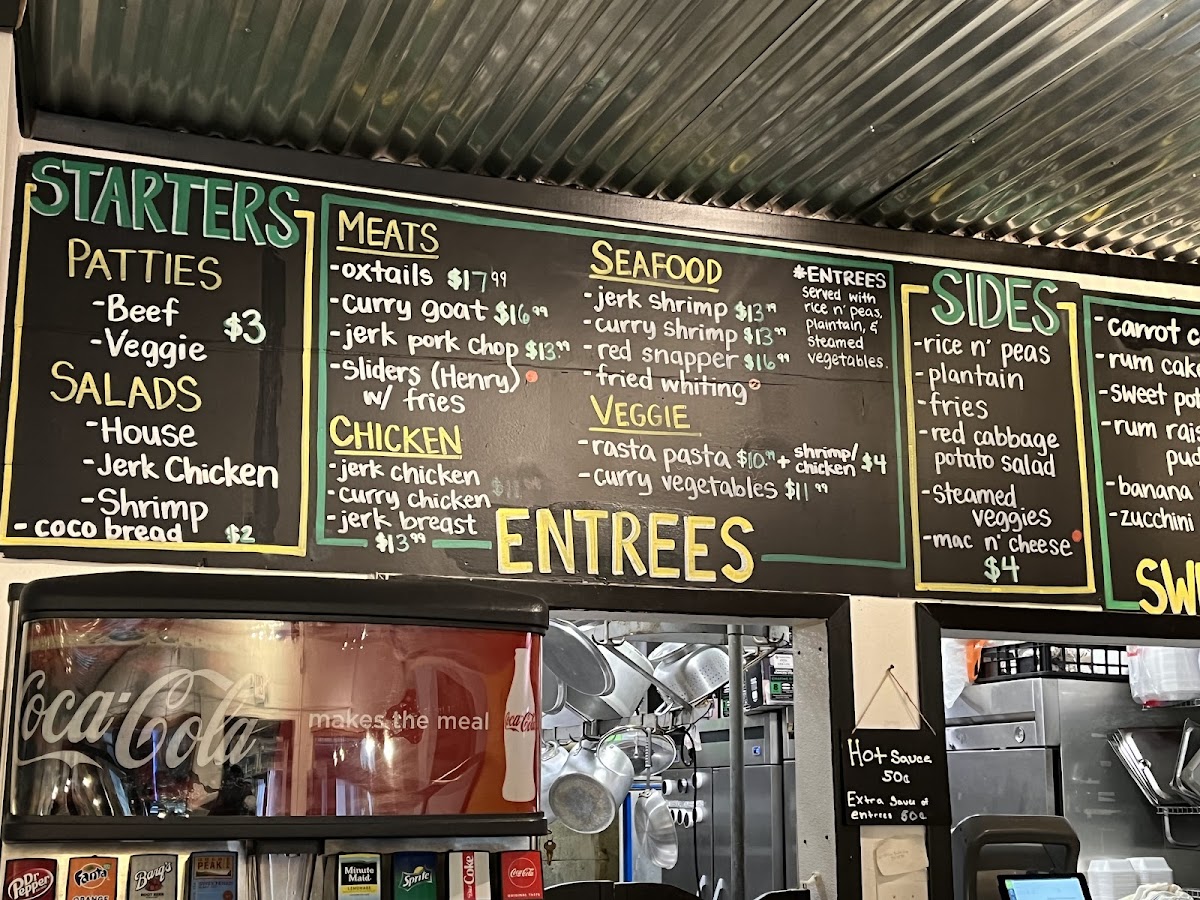 STARTERS
PATTIES
-Beef
$3
-Veggie
SALADS
-House
-Jerk Chicken
-Shrimp
- coco bread $2
MEATS
-oxtails $17.99
-curry goat $16.99
-jerk pork chop $13.99
-sliders (Henry)
w/ fries
CHICKEN
-jerk chicken
-curry chicken
-jerk breast
$13.99
SEAFOOD
-jerk shrimp $13.99
-curry shrimp $13.99
-red snapper $16.99
-fried whiting
VEGGIE
-rasta pasta $10.99 + shrimp/
chicken $4
-curry vegetables $11.99
*ENTREES
served with
rice n' peas,
plaintain, &
steamed
vegetables.
ENTREES
SIDES
-rice n' peas
-plantain
-fries
-red cabbage
potato salad
-steamed
veggies
-mac n' cheese
$4
-carrot
-rum cake
-sweet
-rum
-banana
-zucchini
Coca-Cola
makes the meal
Coca-Cola
Hot Sauce
50¢
Extra Sauce of
entrees 60¢
Dr Pepper
Fanta
ORANGE
Barq's
GOLD PEAK
Minute Maid
LEMONADE
Sprite
Coke
Coca-Cola